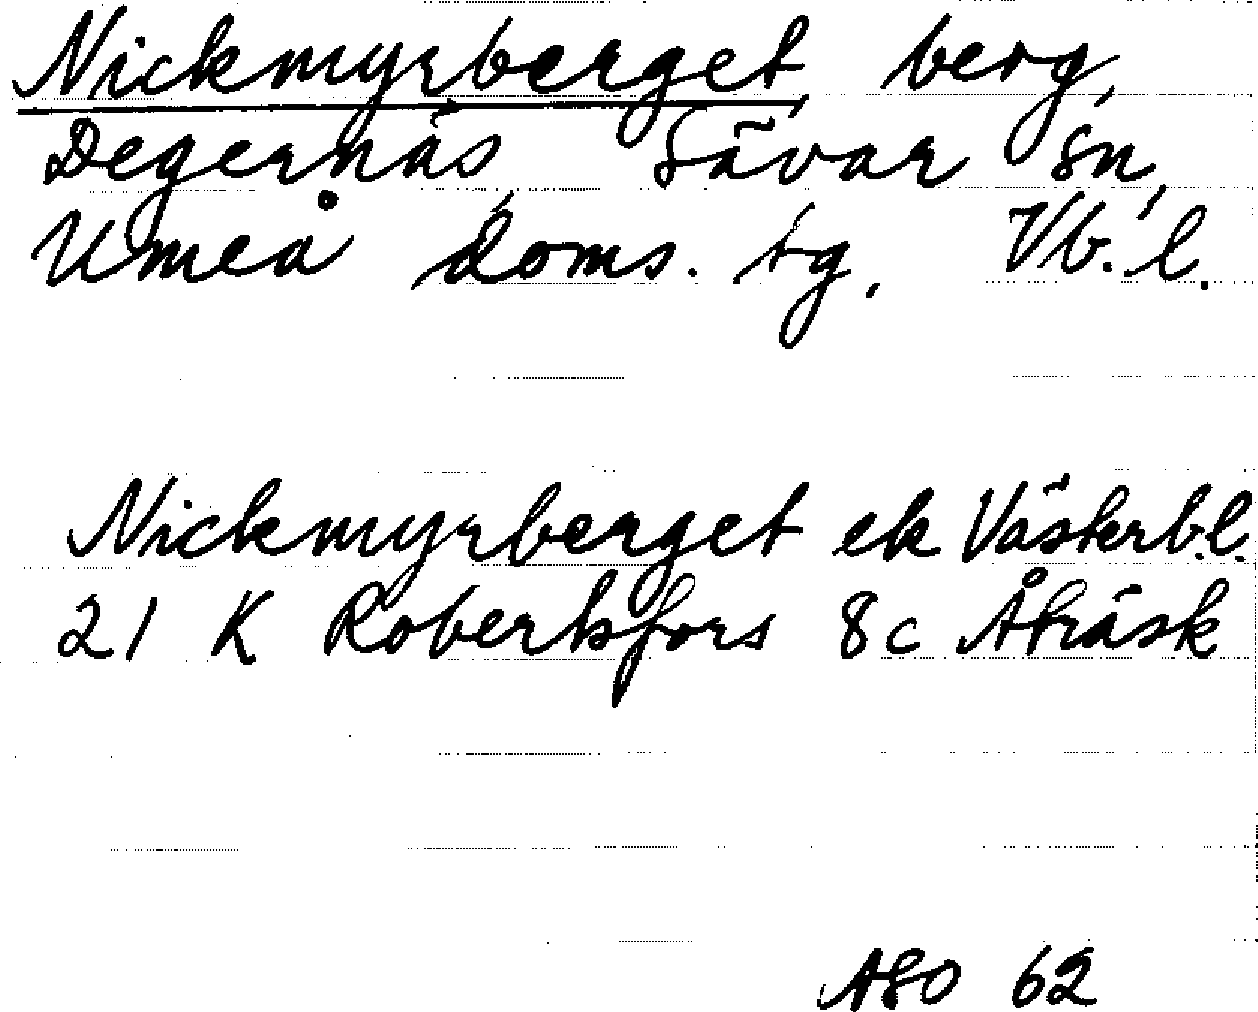 Nickmyrberget, berg,
Degernäs, Sävar sn,
Umeå doms. tg, Vb. l.
Nickmyrberget ek Västerb.l.
21 K Robertsfors 8c Åträsk
ASO 62